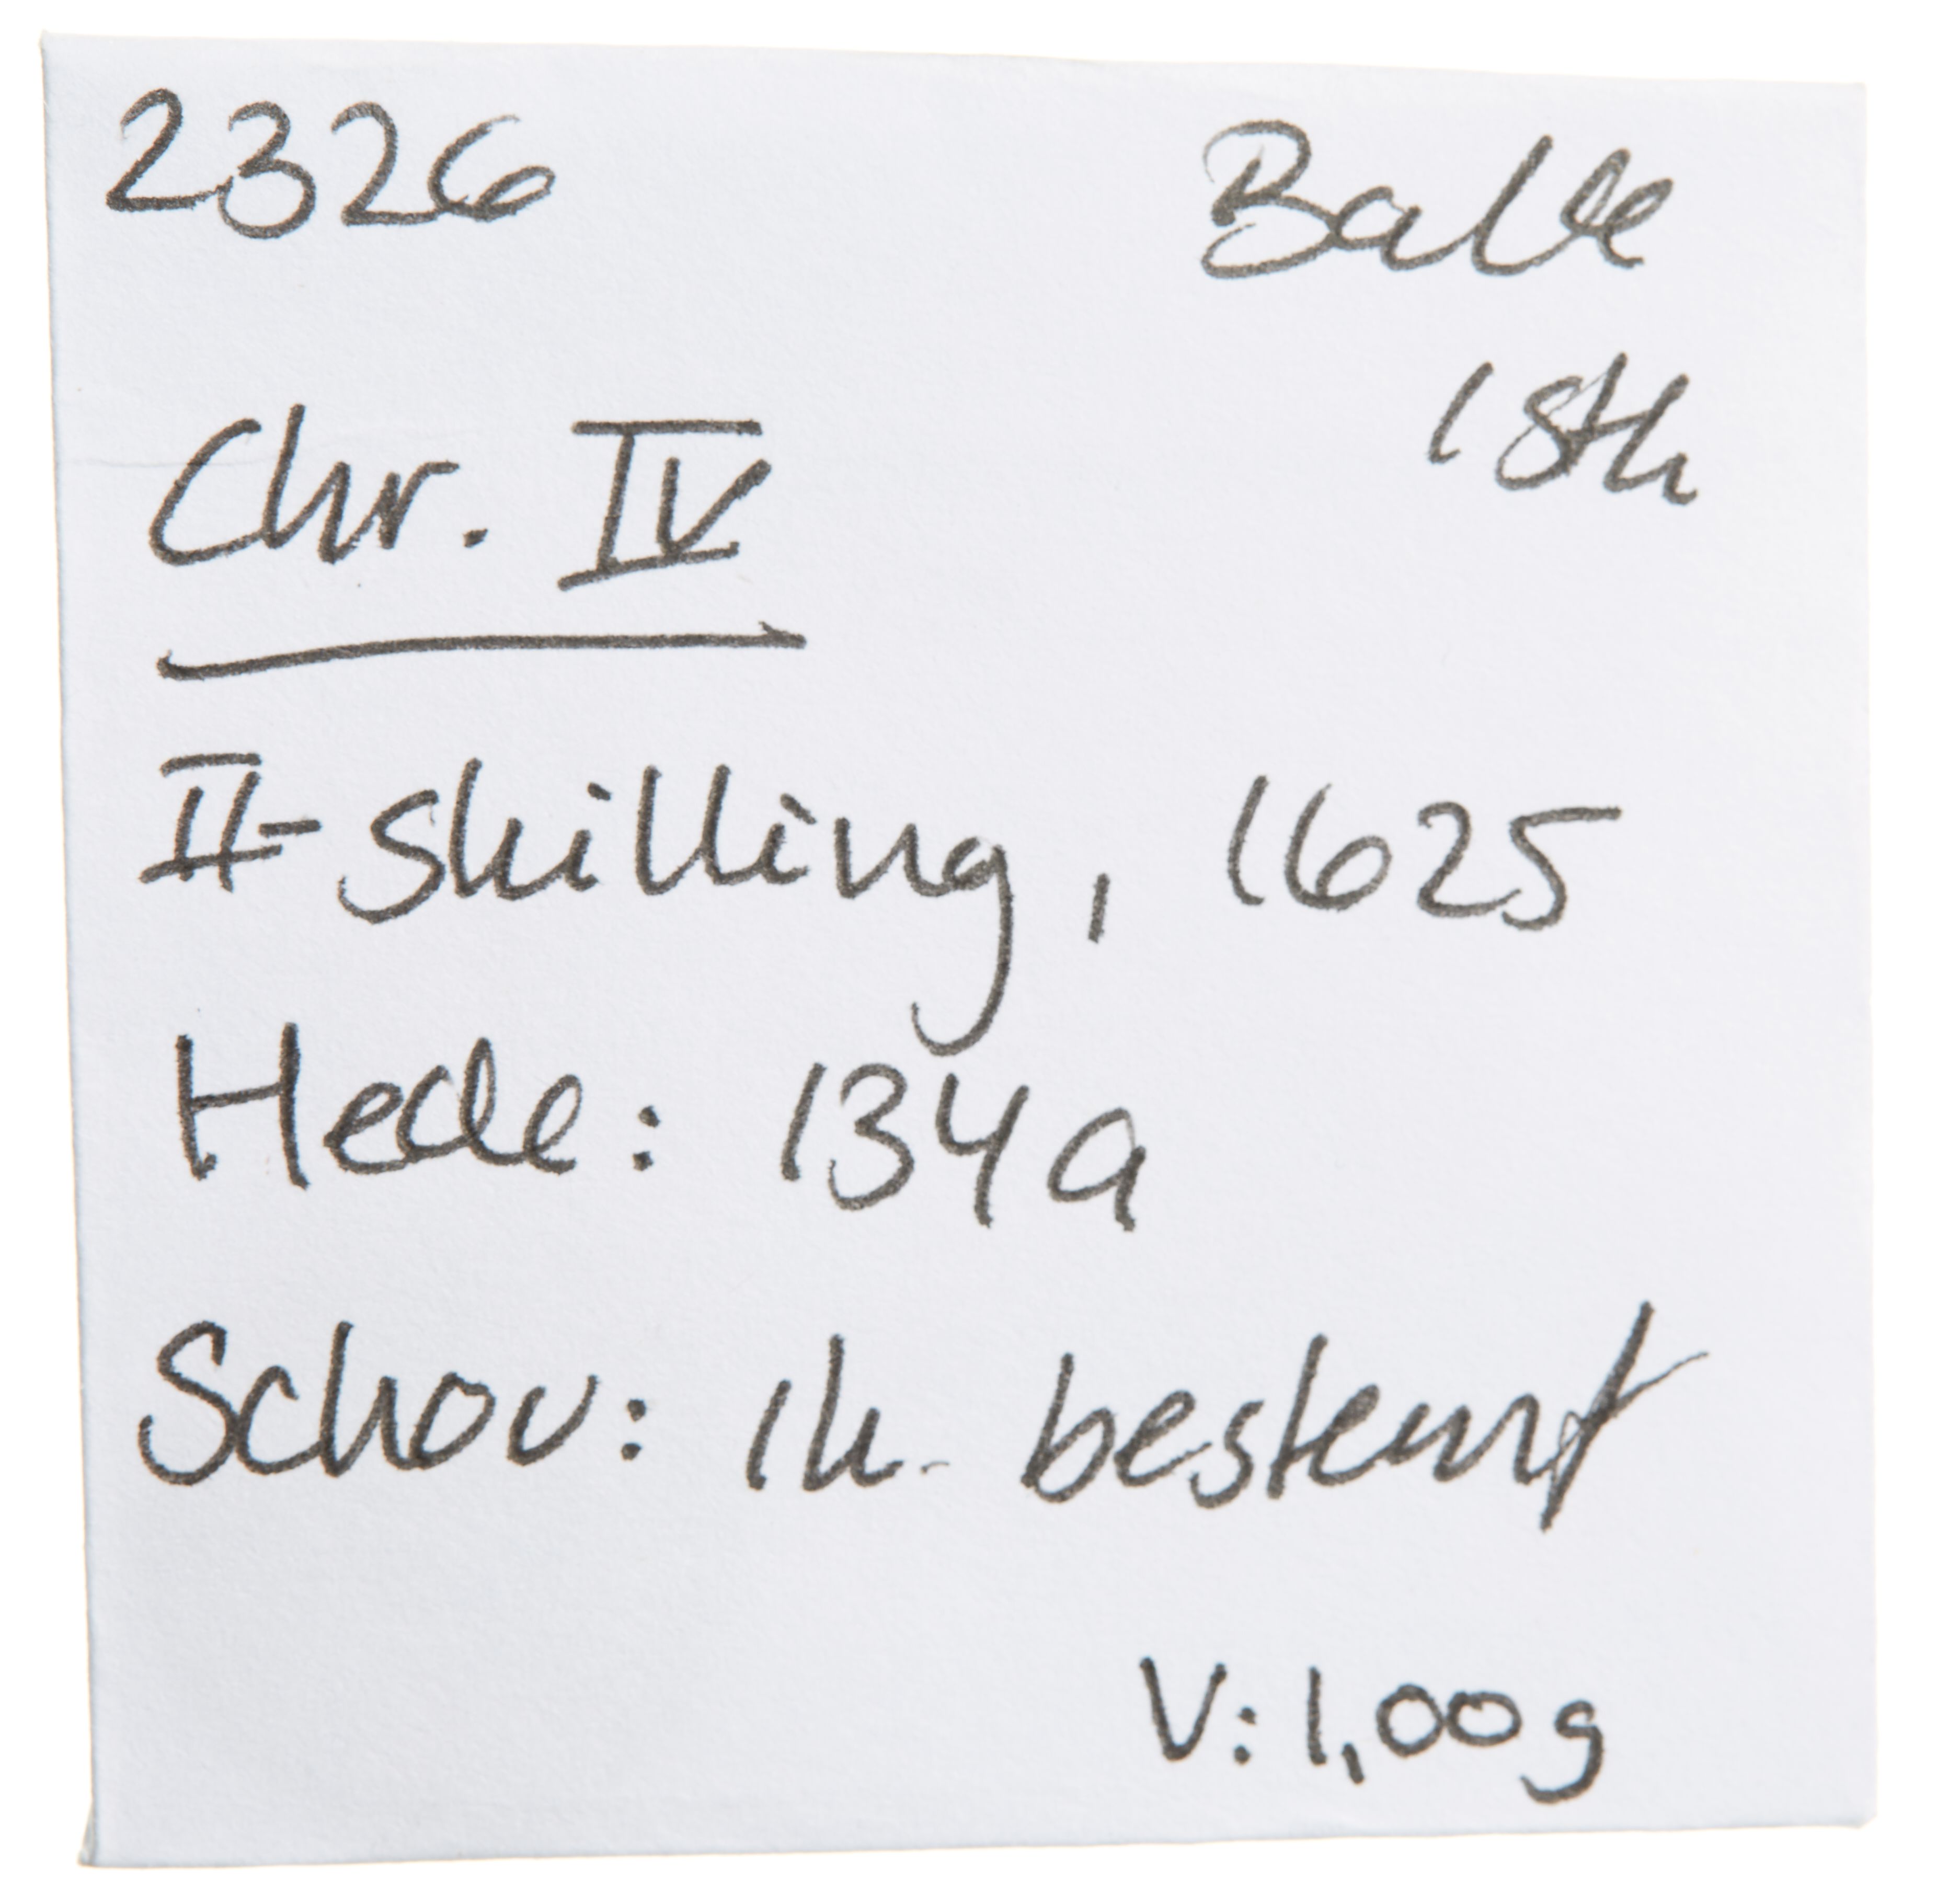 2326 Balle
1 stk
Chr. IV
II-skilling, 1625
Hede: 134a
Schou: Ik. bestemt
V: 1,00g